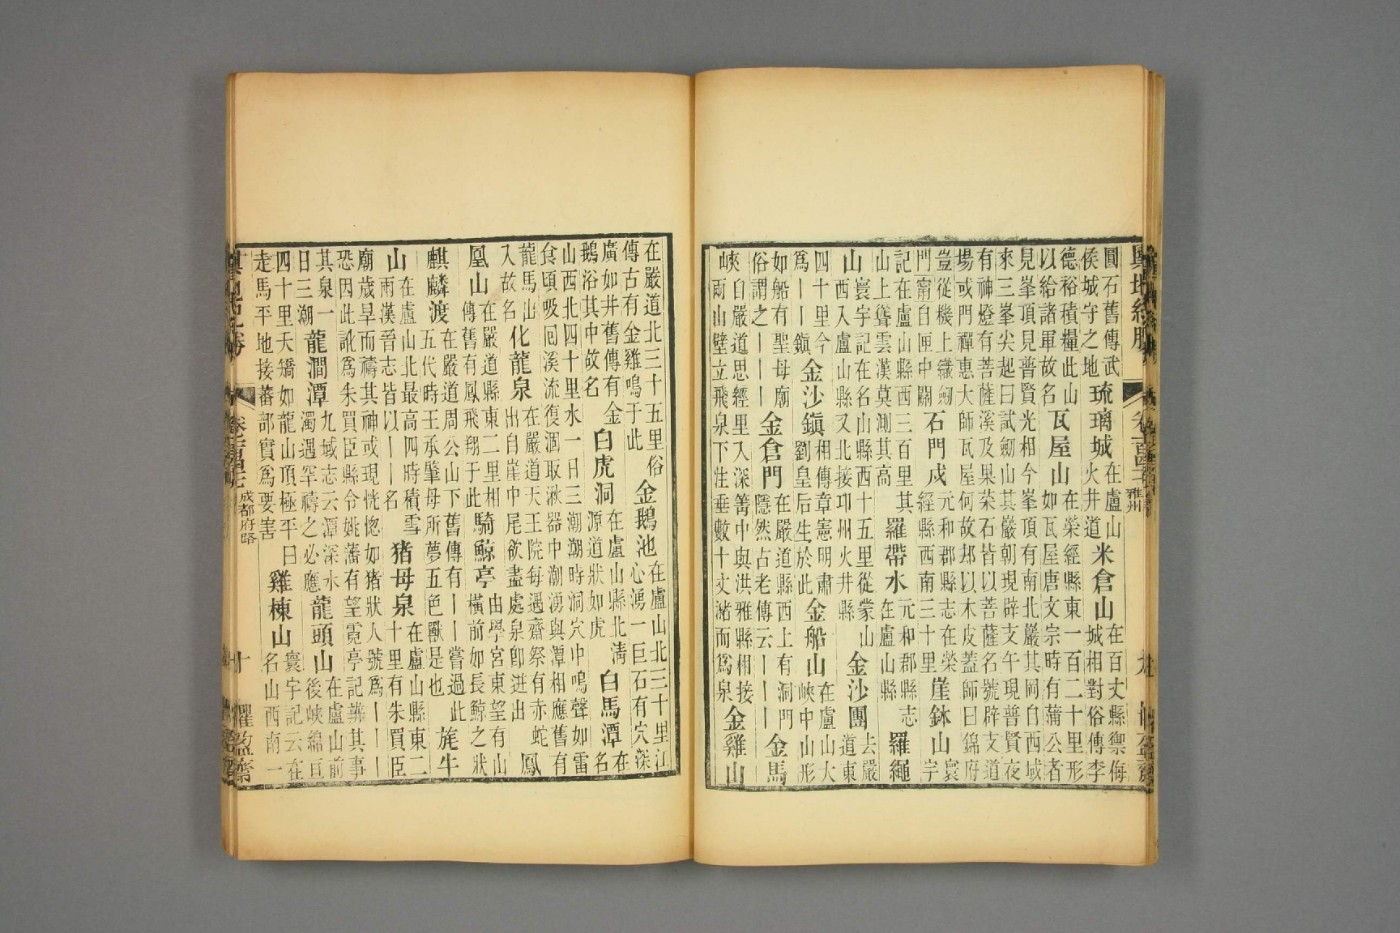 輿地紀勝 卷一百四十七 雅州 懼盈齋
圓石舊傳武
侯城守之地
琉璃城
在盧山
火井道
米倉山
在百丈縣禦侮
城相對俗傳李
德裕積糧此山
以給諸軍故名
瓦屋山
在榮經縣東一百二十里形
如瓦屋唐文宗時有蒲公者
見峯頂見普賢光相今峯頂有南北巖其岡自西域
來三峯尖起曰試劒山其巖朝現辟支午現普賢夜
有神燈有菩薩溪及果菜石皆以菩薩名號辟支道
場或門禪惠大師瓦屋何故以木皮蓋師曰錦府
豈從機上織劒
門甯自匣中關
石門戍
元和郡縣志在榮
經縣西南三十里
崖鉢山
寰
宇
記在盧山縣西三百里其
山上聳雲漢莫測其高
羅帶水
元和郡縣志
在盧山縣
羅繩
山
寰宇記在名山縣西十五里從蒙山
西入盧山縣又北接邛州火井縣
金沙團
去嚴
道東
四十里今
爲一鎮
金沙鎮
相傳章憲明肅
劉皇后生於此
金船山
在盧山大
峽中山形
如船有聖母廟
俗謂之丨丨
金倉門
在嚴道縣西上有洞門
隱然占老傳云丨丨
金馬
峽
自嚴道思經里入深箐中與洪雅縣相接
兩山壁立飛泉下注垂數十丈瀦而爲泉
金雞山
在嚴道北三十五里俗
傳古有金雞鳴于此
金鵝池
在盧山北三十里江
心湧一巨石有穴深
廣如井舊傳有金
鵝浴其中故名
白虎洞
在盧山縣北淸
源道狀如虎
白馬潭
在
名
山西北四十里水一日三潮潮時洞穴中鳴聲如雷
食頃吸囘溪流復涸取湫器中潮湧與潭相應舊有
龍馬出
入故名
化龍泉
在嚴道天王院每遇齋祭有赤蛇
出自崖中尾飲盡處泉卽迸出
鳳
凰山
在嚴道縣東二里相
傳舊有鳳飛翔于此
騎鯨亭
由學宮東望有山
橫前如長鯨之狀
麒麟渡
在嚴道周公山下舊傳有丨丨嘗過此
五代時王承肇母所夢五色獸是也
旄牛
山
在盧山北最高四時積雪
雨漢晉志皆以丨丨名
猪母泉
在盧山縣東二
十里有朱買臣
廟歲旱而禱其神或現恍惚如猪狀人號爲丨丨
恐因此訛爲朱買臣縣令姚藩有望霓亭記辨其事
其泉一
日三潮
龍澗潭
九域志云潭深水
濁遇罕禱之必應
龍頭山
在盧山前
後峽綿亘
四十里夭矯如龍山頂極平曰
走馬平地接蕃部實爲要害
雞棟山
寰宇記云在
名山西南一
輿地紀勝 卷一百四十七 成都府路 十 懼盈齋